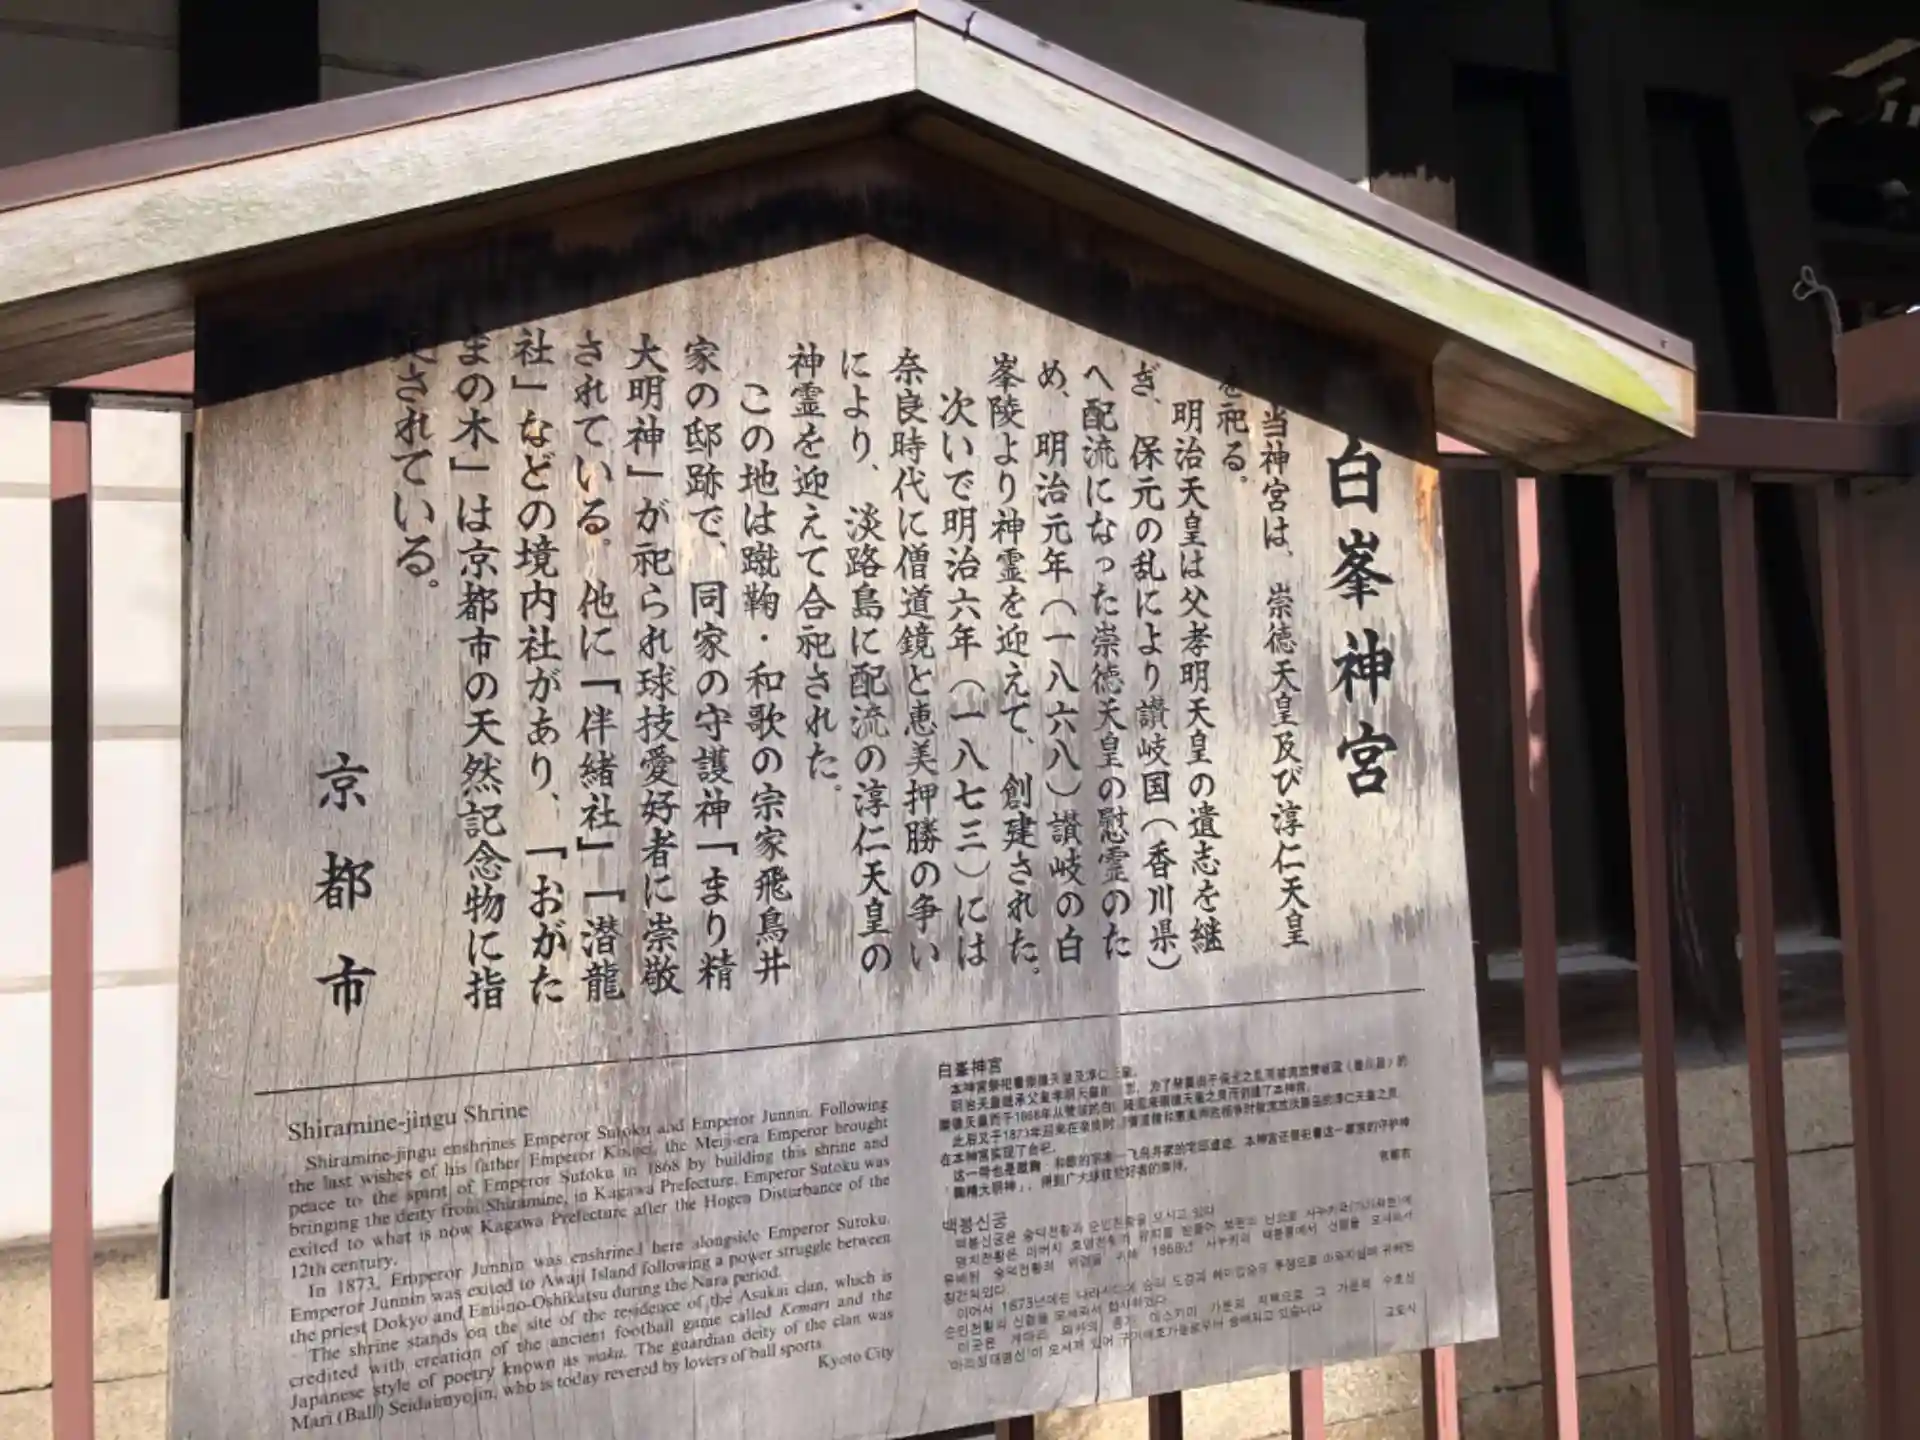 白峯神宮
当神宮は、崇徳天皇及び淳仁天皇
を祀る。
明治天皇は父孝明天皇の遺志を継
ぎ、保元の乱により讃岐国（香川県）
へ配流になった崇徳天皇の慰霊のた
め、明治元年（一八六八）讃岐の白
峯陵より神霊を迎えて、創建された。
次いで明治六年（一八七三）には
奈良時代に僧道鏡と恵美押勝の争い
により、淡路島に配流の淳仁天皇の
神霊を迎えて合祀された。
この地は蹴鞠・和歌の宗家飛鳥井
家の邸跡で、同家の守護神「まり精
大明神」が祀られ球技愛好者に崇敬
されている。他に「伴緒社」「潜龍
社」などの境内社があり、「おがた
まの木」は京都市の天然記念物に指
定されている。
京都市
Shiramine-jingu Shrine
Shiramine-jingu enshrines Emperor Sutoku and Emperor Junnin. Following
the last wishes of his father Emperor Komei, the Meiji-era Emperor brought
peace to the spirit of Emperor Sutoku in 1868 by building this shrine and
bringing the deity from Shiramine, in Kagawa Prefecture. Emperor Sutoku was
exiled to what is now Kagawa Prefecture after the Hogen Disturbance of the
12th century.
In 1873, Emperor Junnin was enshrined here alongside Emperor Sutoku.
Emperor Junnin was exiled to Awaji Island following a power struggle between
the priest Dokyo and Emi-no-Oshikatsu during the Nara period.
The shrine stands on the site of the residence of the Asukai clan, which is
credited with creation of the ancient football game called Kemari and the
Japanese style of poetry known as waka. The guardian deity of the clan was
Mari (Ball) Seidaimyojin, who is today revered by lovers of ball sports.
Kyoto City
白峯神宮
本神宫祭祀着崇德天皇及淳仁天皇。
明治天皇继承父皇孝明天皇的 为了慰藉由于保元之乱而被流放赞岐国（香川县）的
崇德天皇而于1868年从赞岐的白 创建了本神宫。
此后又于1873年迎来在奈良时 淳仁天皇之灵
在本神宫实现了合祀。
这一带也是蹴鞠、和歌的宗家——飞鸟井家的宅邸遗迹，本神宫还祭祀着这一家宗的守护神
「鞠精大明神」，得到广大球技爱好者的崇拜。
京都市
백봉신궁
백봉신궁은 숭덕천황과 순인천황을 모시고 있다
이어서 1873년에는
교토시